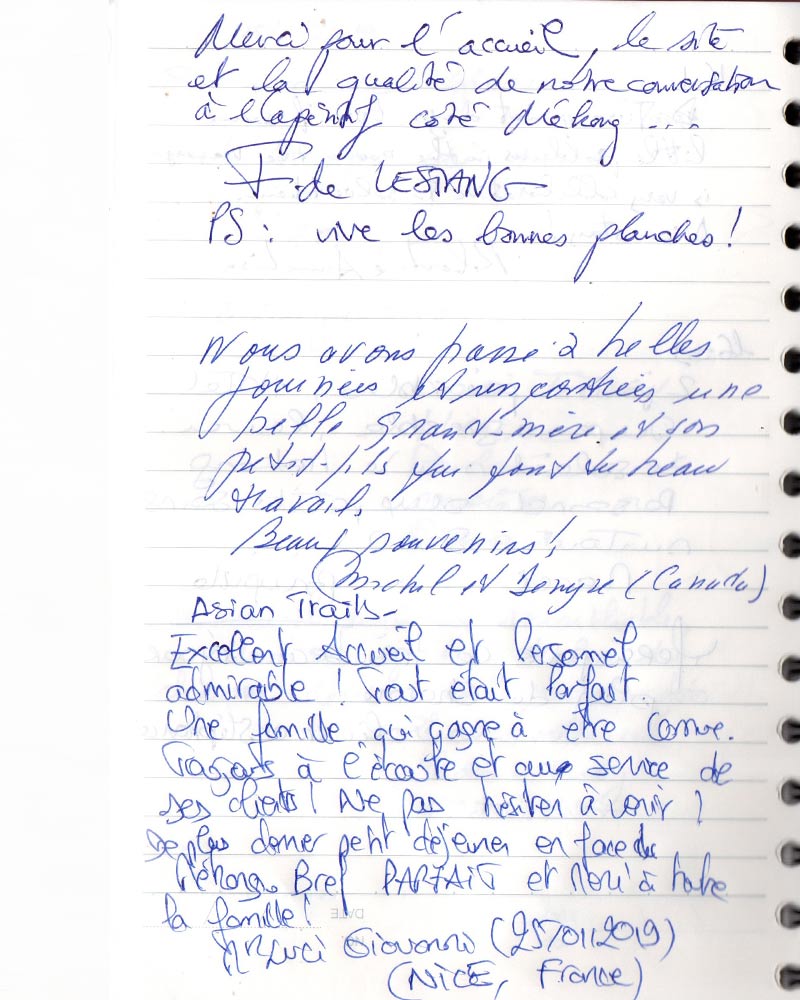 Merci pour l'accueil, le site
et la qualité de notre conversation
à l'apéritif coté Mékong ...
F. de LESTANG
PS : vive les bonnes planches !
Nous avons passé 2 belles
journées et rencontrées une
belle grand-mère et son
petit-fils qui font du beau
travail.
Beaux souvenirs !
Michel et (Canada)
Asian Trails -
Excellent Accueil et Personnel
admirable ! Tout était Parfait.
Une famille qui gagne à être connue.
Toujours à l'écoute et aux service de
ses clients ! Ne pas hésiter à venir !
De plus donner petit déjeuner en face du
Mékong. Bref PARFAIT et Merci à toute
la famille !
Giovanni (25/01/2019)
(NICE, France)